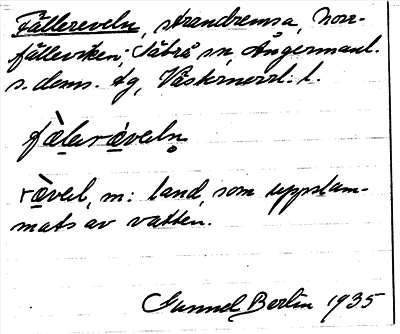 Fällereveln, strandremsa, Norr-
fälleviken, Säbrå sn, Ångermanl.
s. doms. dg, Västernorrl. l.
fä̀leràveln
ràvel, m: land, som uppslam-
mats av vatten.
Gunnel Berlin 1935